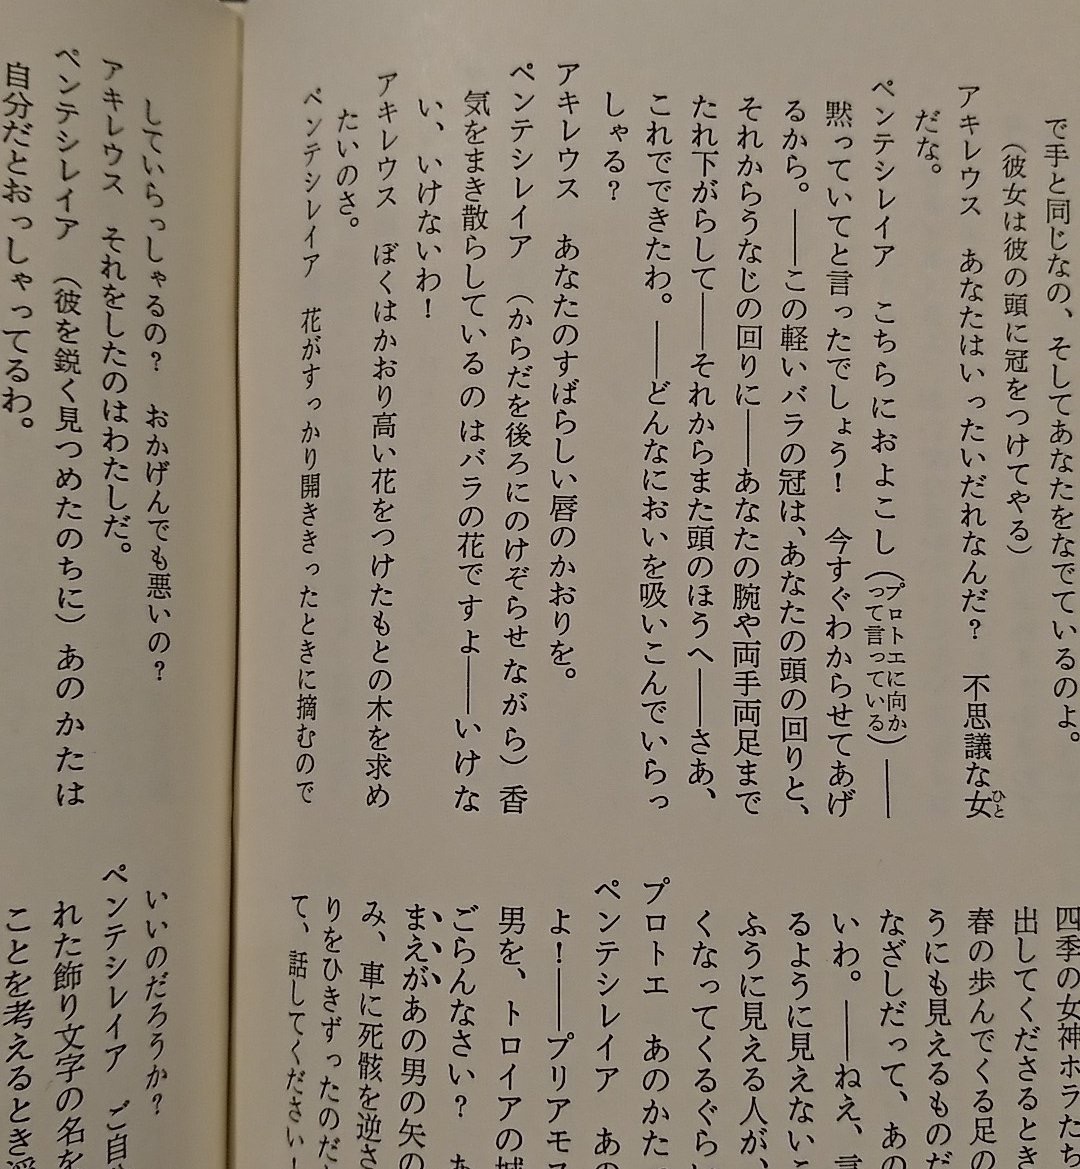 で手と同じなの、そしてあなたをなでているのよ。
（彼女は彼の頭に冠をつけてやる）
アキレウス　あなたはいったいだれなんだ？　不思議な女ひと
だな。
ペンテシレイア　こちらにおよこし（プロトエに向かって言っている）――
黙っていてと言ったでしょう！　今すぐわからせてあげ
るから。――この軽いバラの冠は、あなたの頭の回りと、
それからうなじの回りに――あなたの腕や両手両足まで
たれ下がらして――それからまた頭のほうへ――さあ、
これでできたわ。――どんなにおいを吸いこんでいらっ
しゃる？
アキレウス　あなたのすばらしい唇のかおりを。
ペンテシレイア　（からだを後ろにのけぞらせながら）香
気をまき散らしているのはバラの花ですよ――いけな
い、いけないわ！
アキレウス　ぼくはかおり高い花をつけたもとの木を求め
たいのさ。
ペンテシレイア　花がすっかり開ききったときに摘むので
四季の女神ホラたち
出してくださるとき
春の歩んでくる足の
うにも見えるものだ
なざしだって、あの
いわ。――ねえ、言
るように見えないこ
ふうに見える人が、
くなってくるぐら
プロトエ　あのかた
ペンテシレイア　あの
よ！――プリアモス
男を、トロイアの城
ごらんなさい？　あ
まえがあの男の矢の
み、車に死骸を逆さ
りをひきずったのだ
て、話してください！
していらっしゃるの？　おかげんでも悪いの？
アキレウス　それをしたのはわたしだ。
ペンテシレイア　（彼を鋭く見つめたのちに）あのかたは
自分だとおっしゃってるわ。
いいのだろうか？
ペンテシレイア　ご自
れた飾り文字の名を
ことを考えるとき